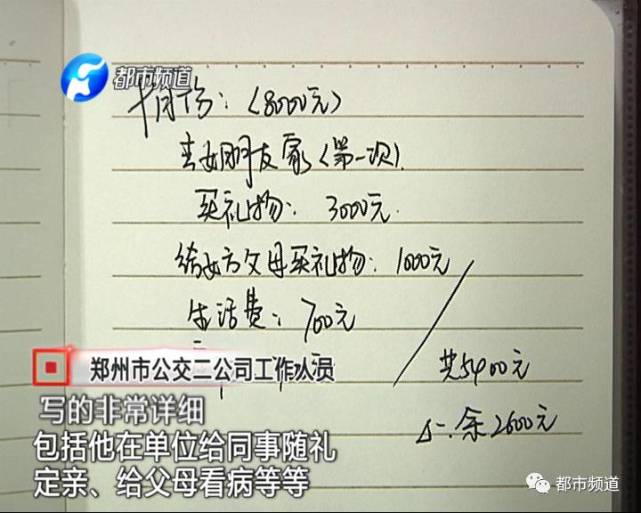 都市频道
十月份：（8000元）
去女朋友家（第一次）
买礼物：3000元
给女方父母买礼物：1000元
生活费：700元
共5400元
余2600元
郑州市公交二公司工作人员
写的非常详细
包括他在单位给同事随礼
定亲、给父母看病等等
都市频道